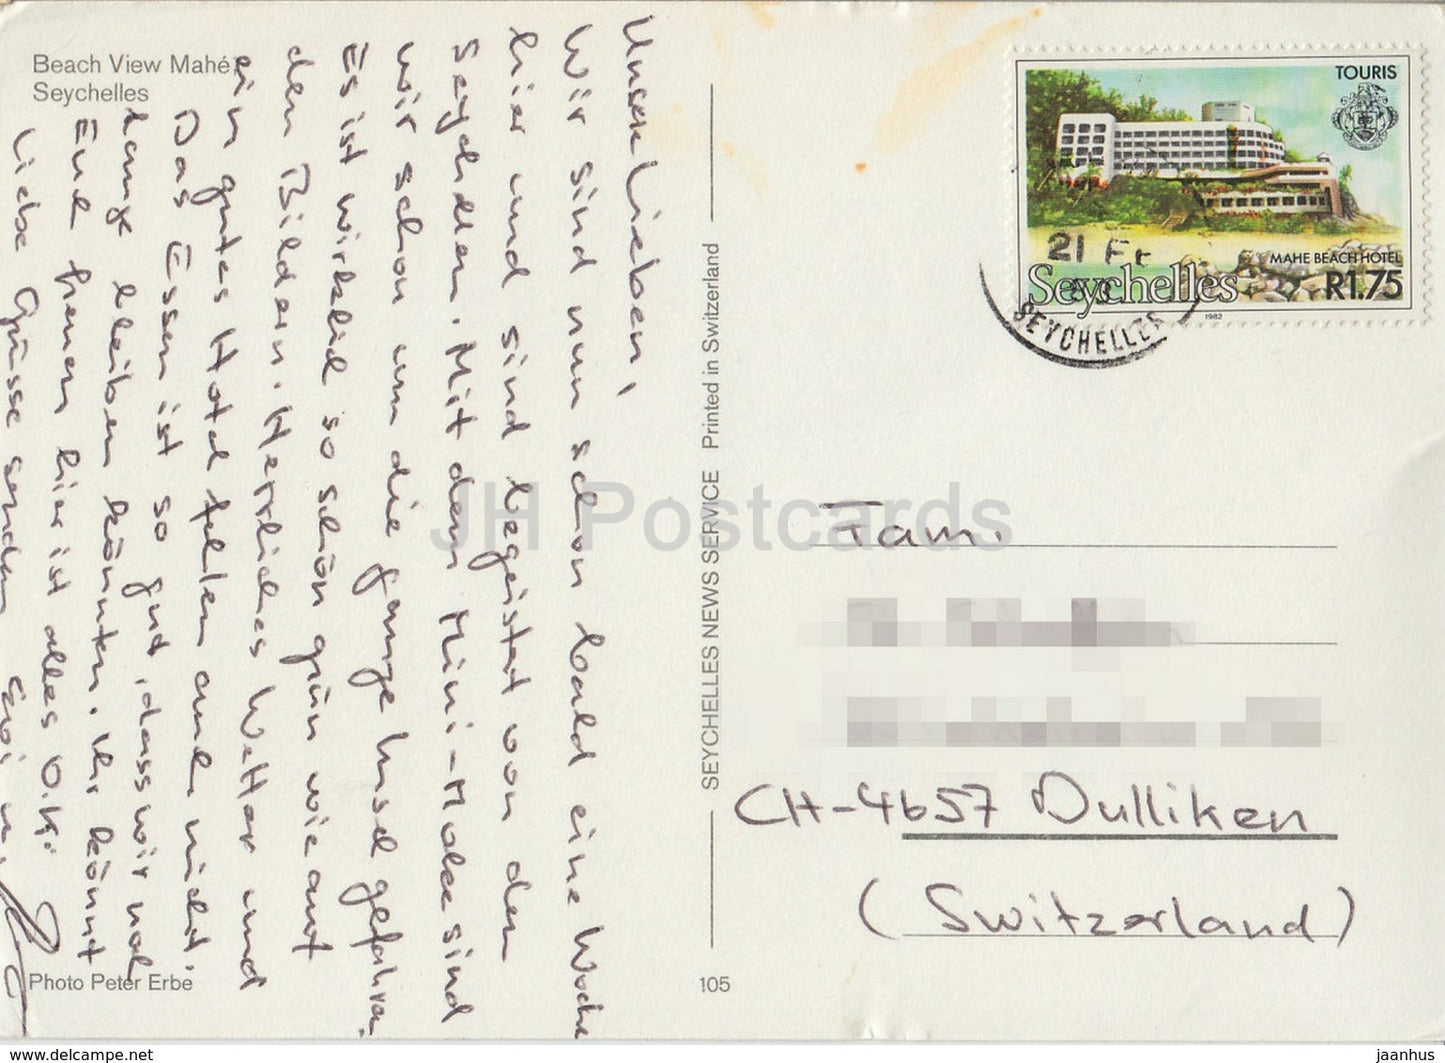 Beach View Mahé
Seychelles
Unsere Lieben,
Wir sind nun schon bald eine Woche
hier und sind begeistert von den
Seychellen. Mit dem Mini-Moke sind
wir schon um die ganze Insel gefahren.
Es ist wirklich so schön grün wie auf
den Bildern. Herrliches Wetter und
ein gutes Hotel fehlen auch nicht.
Das Essen ist so gut, dass wir noch
lange bleiben könnten. Ihr könnt
Euch freuen hier ist alles O.K.
Liebe Grüsse senden
Photo Peter Erbe
SEYCHELLES NEWS SERVICE Printed in Switzerland
105
TOURIS
MAHE BEACH HOTEL
Seychelles R1.75
1982
21 FE
83
SEYCHELLES
Fam.
CH-4657 Dulliken
(Switzerland)
JH Postcards
www.delcampe.net
jaanhus